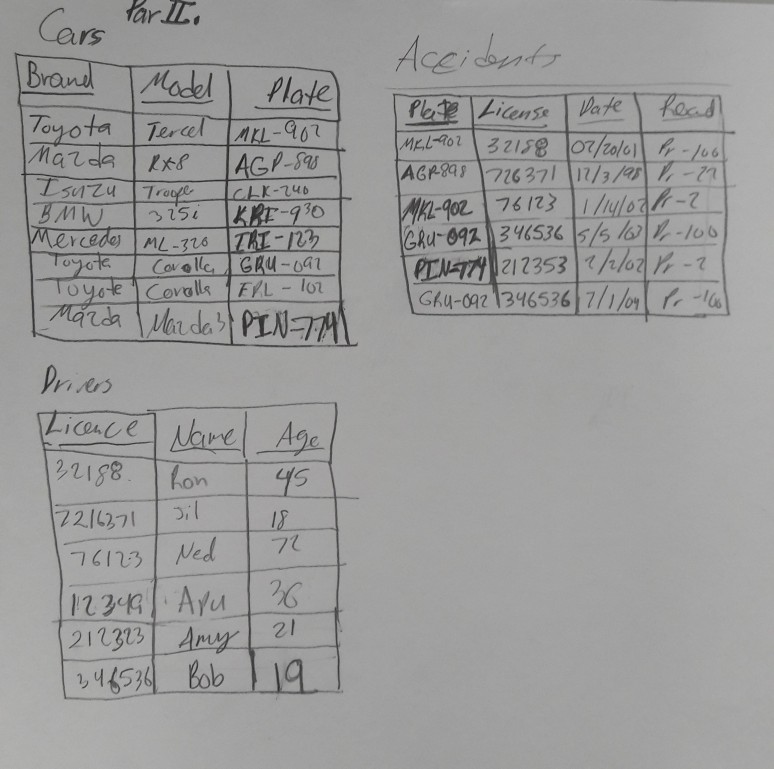 Par II.
Cars
Brand Model Plate
Toyota Tercel MKL-902
Mazda RX8 AGP-898
Isuzu Trooper CLK-240
BMW 325i KRE-930
Mercedes ML-320 IBI-123
Toyota Corolla GRU-092
Toyota Corolla EPL-102
Mazda Mazda3 PIN-774
Accidents
Plate License Date Road
MKL-902 32188 02/20/01 Pr-100
AGP898 726371 12/3/98 Pr-22
MKL-902 76123 1/14/02 Pr-2
GRU-092 346536 5/5/03 Pr-100
PIN-774 212353 2/2/02 Pr-2
GRU-092 346536 7/1/04 Pr-100
Drivers
Licence Name Age
32188. Ron 45
7216371 Jil 18
76123 Ned 72
12349 Apu 36
212323 Amy 21
346536 Bob 19